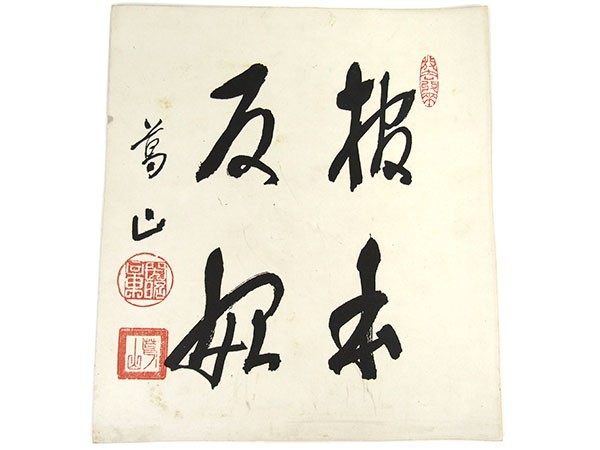 報本
反始
葛山